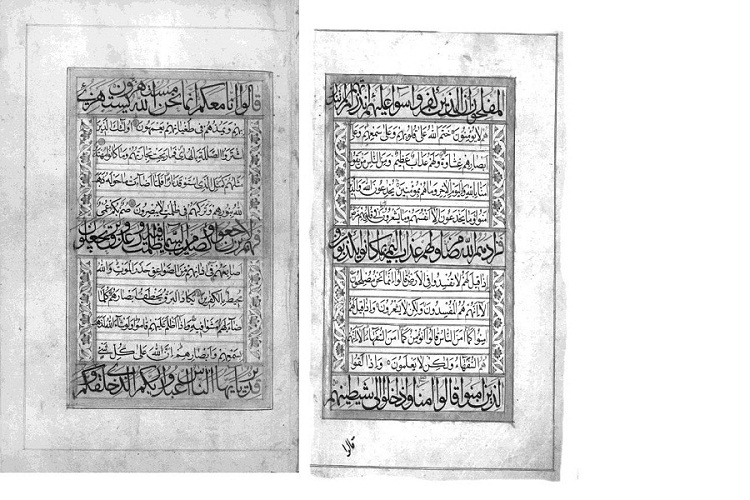 المفلحون ان الذين كفروا سواء عليهم ءانذرتهم ام لم تنذر
هم لا يؤمنون ختم الله على قلوبهم وعلى سمعهم وعلى
ابصارهم غشاوة ولهم عذاب عظيم ومن الناس من يقول
امنا بالله وباليوم الاخر وما هم بمؤمنين يخدعون الله والذين
امنوا وما يخدعون الا انفسهم وما يشعرون في قلوبهم مرض
فزادهم الله مرضا ولهم عذاب اليم بما كانوا يكذبون و
اذا قيل لهم لا تفسدوا في الارض قالوا انما نحن مصلحون
الا انهم هم المفسدون ولكن لا يشعرون واذا قيل لهم
امنوا كما امن الناس قالوا انؤمن كما امن السفهاء الا انهم
هم السفهاء ولكن لا يعلمون واذا لقوا
الذين امنوا قالوا امنا واذا خلوا الى شيطينهم
قالوا
قالوا انا معكم انما نحن مستهزءون الله يستهزئ
بهم ويمدهم في طغيانهم يعمهون اولئك الذين
اشتروا الضللة بالهدى فما ربحت تجارتهم وما كانوا مهتدين
مثلهم كمثل الذي استوقد نارا فلما اضاءت ما حوله ذهب
الله بنورهم وتركهم في ظلمت لا يبصرون صم بكم عمي
فهم لا يرجعون او كصيب من السماء فيه ظلمت ورعد وبرق يجعلون
اصابعهم في اذانهم من الصواعق حذر الموت والله
محيط بالكفرين يكاد البرق يخطف ابصارهم كلما
اضاء لهم مشوا فيه واذا اظلم عليهم قاموا ولو شاء الله لذهب
بسمعهم وابصارهم ان الله على كل شيء
قدير يايها الناس اعبدوا ربكم الذي خلقكم